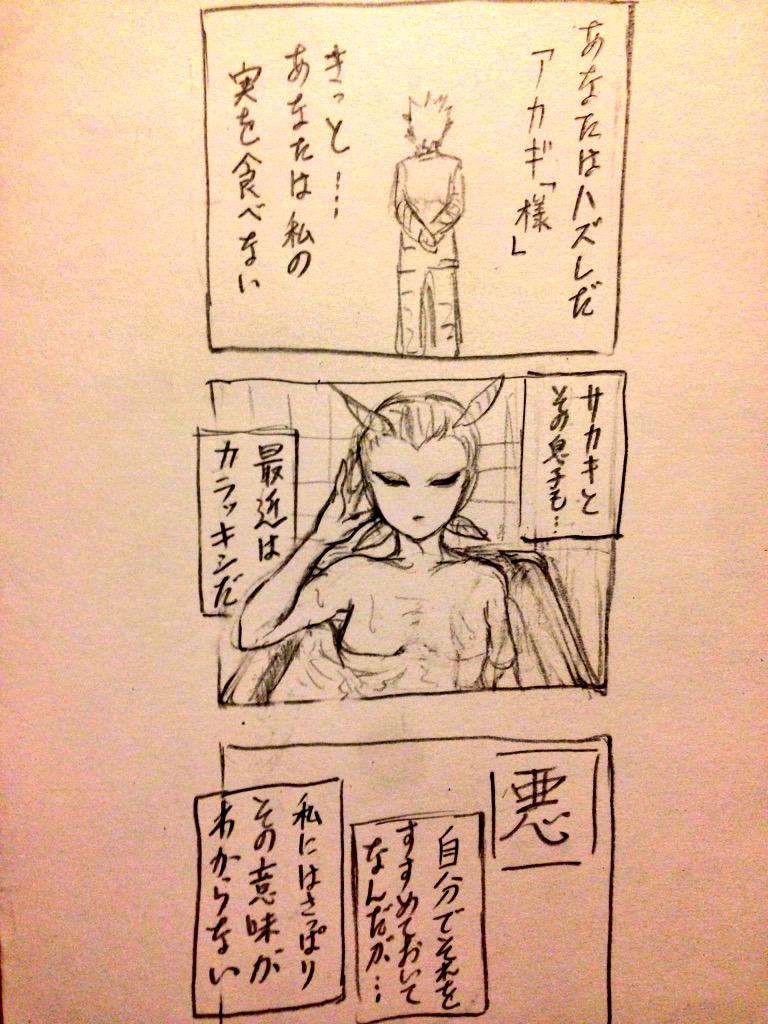 あなたはハズレだ
「アカギ「様」
きっと…
あなたは私の
実を食べない
サカキと
その息子も…
最近は
カラッキシだ
悪
自分でそれを
すすめておいて
なんだが…
私にはさっぱり
その意味が
わからない